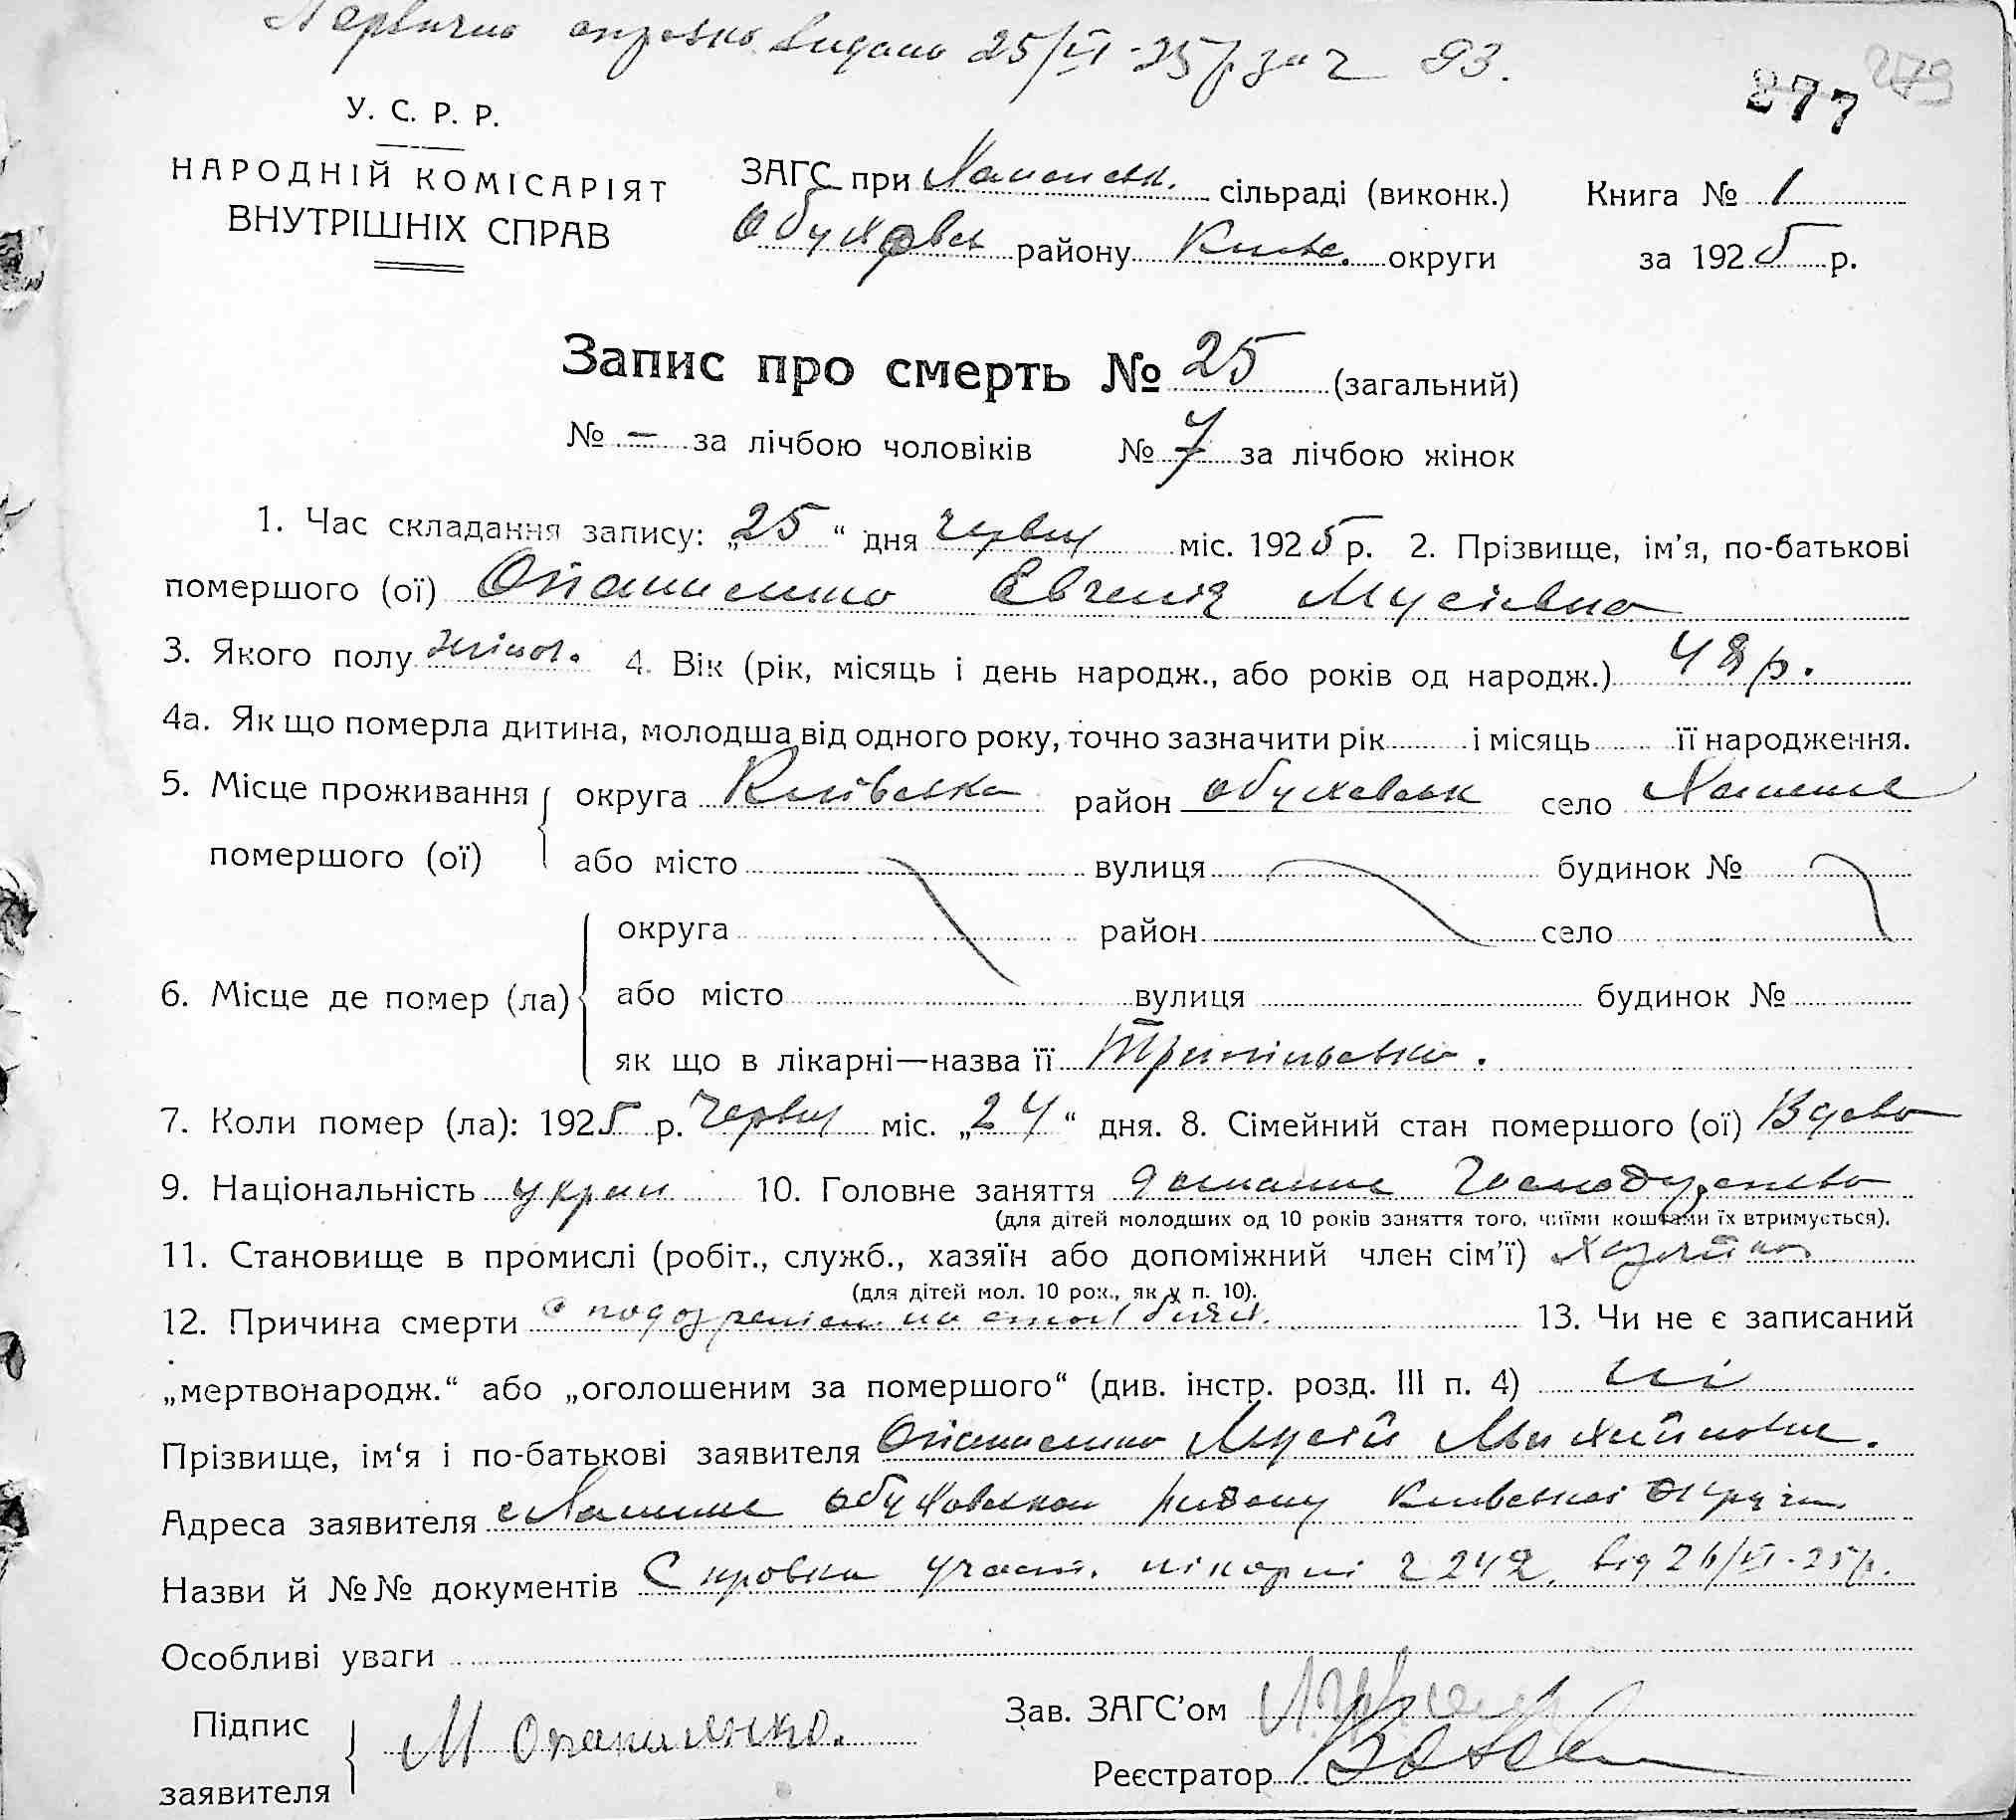 Первично справка видана 25/VI-25 р за ч 93.
277 279
У. С. Р. Р.
НАРОДНІЙ КОМІСАРІЯТ
ВНУТРІШНІХ СПРАВ
ЗАГС при сільраді (виконк.) Книга № 1
Обуховск району Київс. округи за 1925 р.
Запис про смерть № 25 (загальний)
№ — за лічбою чоловіків № 7 за лічбою жінок
1. Час складання запису: „25“ дня червня міс. 1925 р. 2. Прізвище, ім'я, по-батькові
помершого (ої) Опанасенко Евгенія Мусіївна
3. Якого полу жіноч. 4. Вік (рік, місяць і день народж., або років од народж.) 48 р.
4а. Як що померла дитина, молодша від одного року, точно зазначити рік і місяць її народження.
5. Місце проживання округа Київська район Обуховськ село
помершого (ої) або місто вулиця будинок №
округа район село
6. Місце де помер (ла) або місто вулиця будинок №
як що в лікарні—назва її Трипільська.
7. Коли помер (ла): 1925 р. червня міс. „24“ дня. 8. Сімейний стан помершого (ої) Вдова
9. Національність украін 10. Головне заняття домашнє господарство
(для дітей молодших од 10 років заняття того, чиїми коштами їх втримується).
11. Становище в промислі (робіт., служб., хазяїн або допоміжний член сім'ї) хазяйка
(для дітей мол. 10 рок., як у п. 10).
12. Причина смерти с подозрением на 13. Чи не є записаний
„мертвонародж.“ або „оголошеним за помершого“ (див. інстр. розд. III п. 4) ні
Прізвище, ім'я і по-батькові заявителя Опанасенко Мусій
Адреса заявителя Обуховской району Киівської округи
Назви й №№ документів Справка участ. лікарні ч 242 від 26/VI-25 р.
Особливі уваги
Підпис заявителя М Опанасенко.
Зав. ЗАГС'ом
Реєстратор